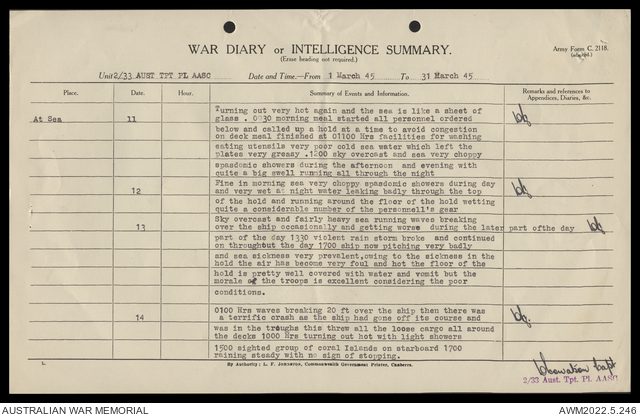 WAR DIARY or INTELLIGENCE SUMMARY.
(Erase heading not required.)
Army Form C. 2118.
Unit 2/33 AUST TPT PL AASC Date and Time.—From 1 March 45 To 31 March 45
Place. Date. Hour. Summary of Events and Information. Remarks and references to Appendices, Diaries, &c.
At Sea 11 Turning out very hot again and the sea is like a sheet of
glass . 0930 morning meal started all personnel ordered
below and called up a hold at a time to avoid congestion
on deck meal finished at 01100 Hrs facilities for washing
eating utensils very poor cold sea water which left the
plates very greasy .1200 sky overcast and sea very choppy
spasmodic showers during the afternoon and evening with
quite a big swell running all through the night
12 Fine in morning sea very choppy spasdomic showers during day
and very wet at night water leaking badly through the top
of the hold and running around the floor of the hold wetting
quite a considerable number of the personnell's gear
13 Sky overcast and fairly heavy sea running waves breaking
over the ship occasionally and getting worse during the later part ofthe day
part of the day 1330 violent rain storm broke and continued
on throughout the day 1700 ship now pitching very badly
and sea sickness very prevalent,owing to the sickness in the
hold the air has become very foul and hot the floor of the
hold is pretty well covered with water and vomit but the
morale of the troops is excellent considering the poor
conditions.
14 0100 Hrs waves breaking 20 ft over the ship then there was
a terrific crash as the ship had gone off its course and
was in the troughs this threw all the loose cargo all around
the decks 1000 Hrs turning out hot with light showers
1500 sighted group of coral Islands on starboard 1700
raining steady with no sign of stopping.
By Authority: L. F. Johnston, Commonwealth Government Printer, Canberra.
Capt
2/33 Aust. Tpt. Pl. AASC
AUSTRALIAN WAR MEMORIAL
AWM2022.5.246